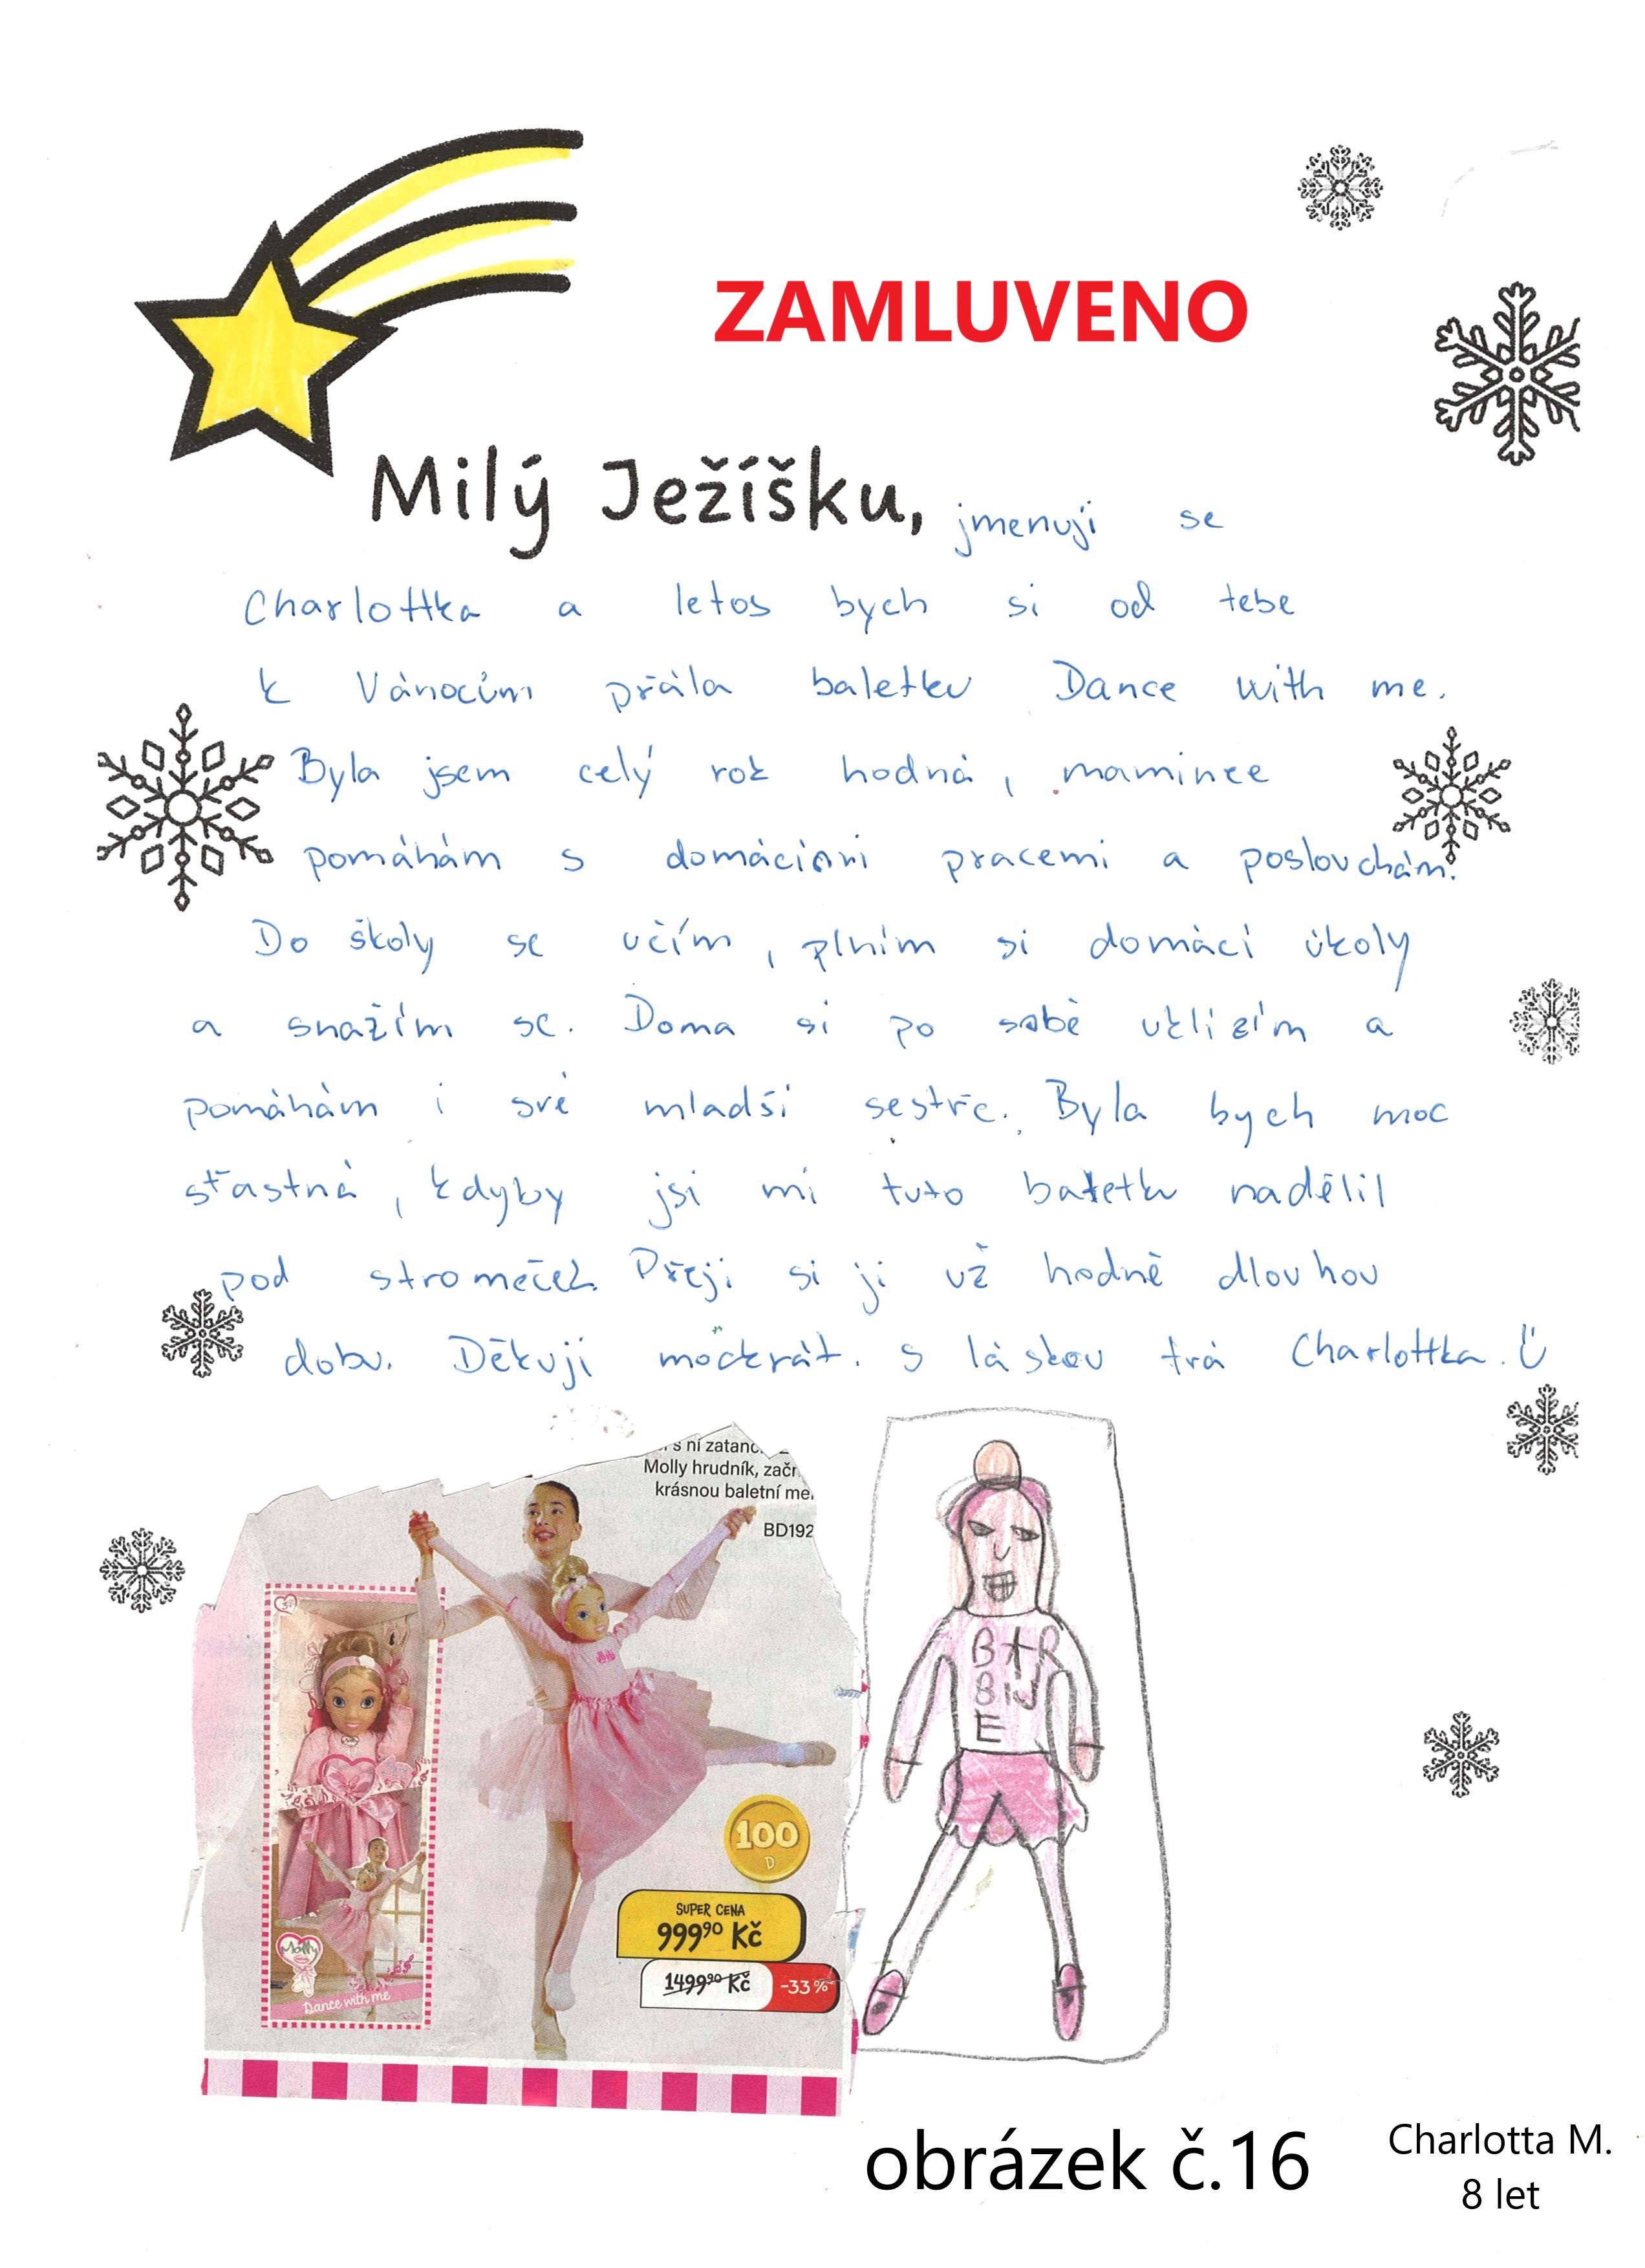 ZAMLUVENO
Milý Ježíšku, jmenuji se
Charlottka a letos bych si od tebe
k Vánocům přála baletku Dance with me.
Byla jsem celý rok hodná, mamince
pomáhám s domácími pracemi a poslouchám.
Do školy se učím, plním si domácí úkoly
a snažím se. Doma si po sobě uklízím a
pomáhám i své mladší sestře. Byla bych moc
šťastná, kdyby jsi mi tuto baletku nadělil
pod stromeček. Přeji si ji už hodně dlouhou
dobu. Děkuji mockrát. s láskou tvá Charlottka.
s ní zatanc
Molly hrudník, začn
krásnou baletní me
BD192
BAR
BIJ
E
100
D
SUPER CENA
999⁹⁰ Kč
1499⁹⁰ Kč -33%
Molly
Dance with me
obrázek č.16
Charlotta M.
8 let